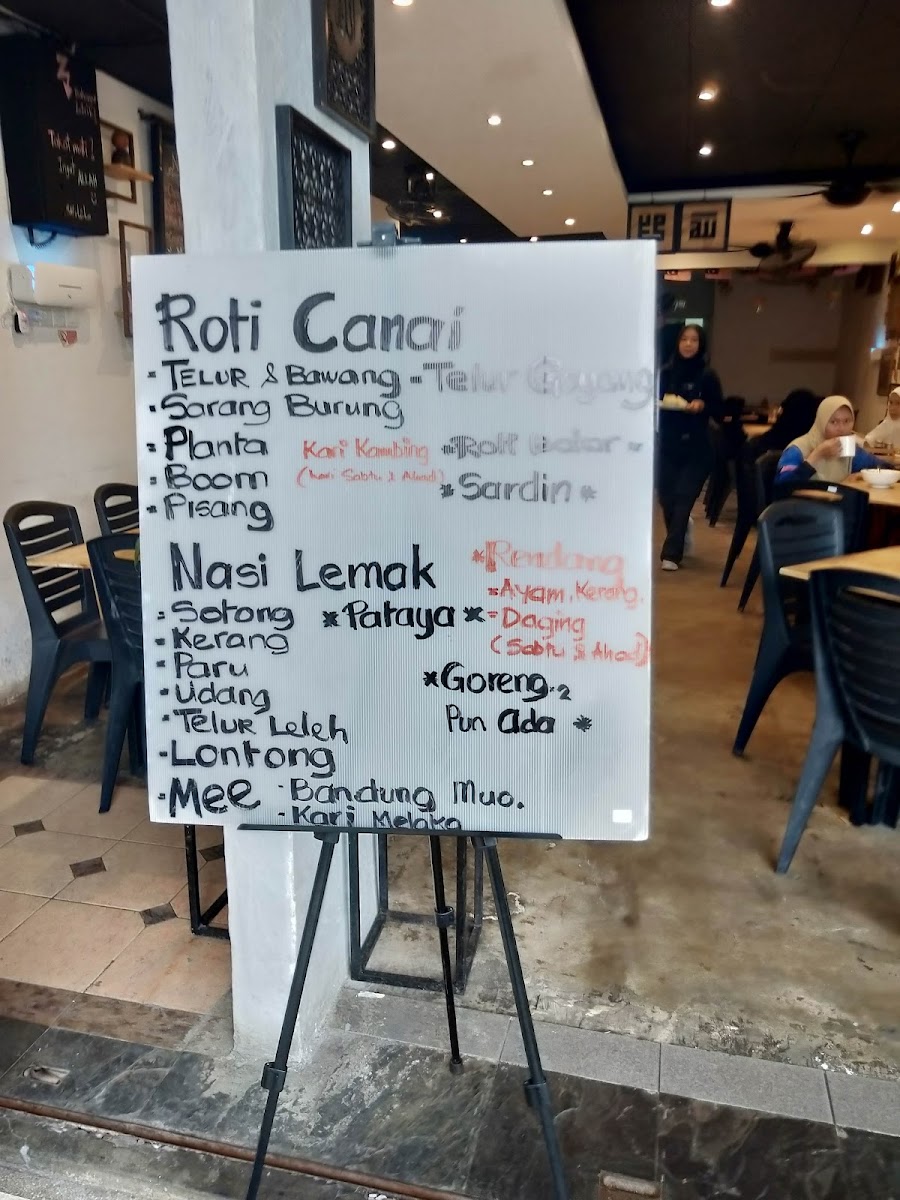 Roti Canai
- TELUR & Bawang - Telur Goyang
- Sarang Burung
- Planta
Kari Kambing
(hari Sabtu & Ahad)
- Boom
- Pisang
* Sardin *
Nasi Lemak
- Sotong
- Kerang
- Paru
- Udang
- TELUR Leleh
* Pataya *
* Rendang
- Ayam, Kerang,
- Daging
(Sabtu & Ahad)
* Goreng.2
Pun Ada *
- Lontong
- Mee - Bandung Muo.
- Kari Melaka